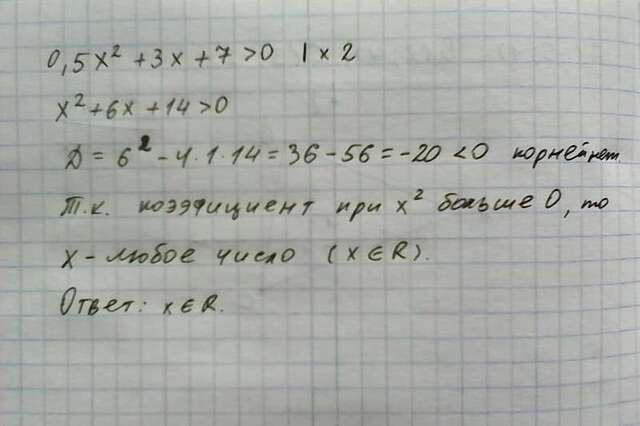 0,5x² + 3x + 7 > 0 | x 2
x² + 6x + 14 > 0
Д = 6² - 4 · 1 · 14 = 36 - 56 = -20 < 0 корней нет.
Т.к. коэфициент при x² больше 0, то
x - любое число (x ∈ R).
Ответ: x ∈ R.